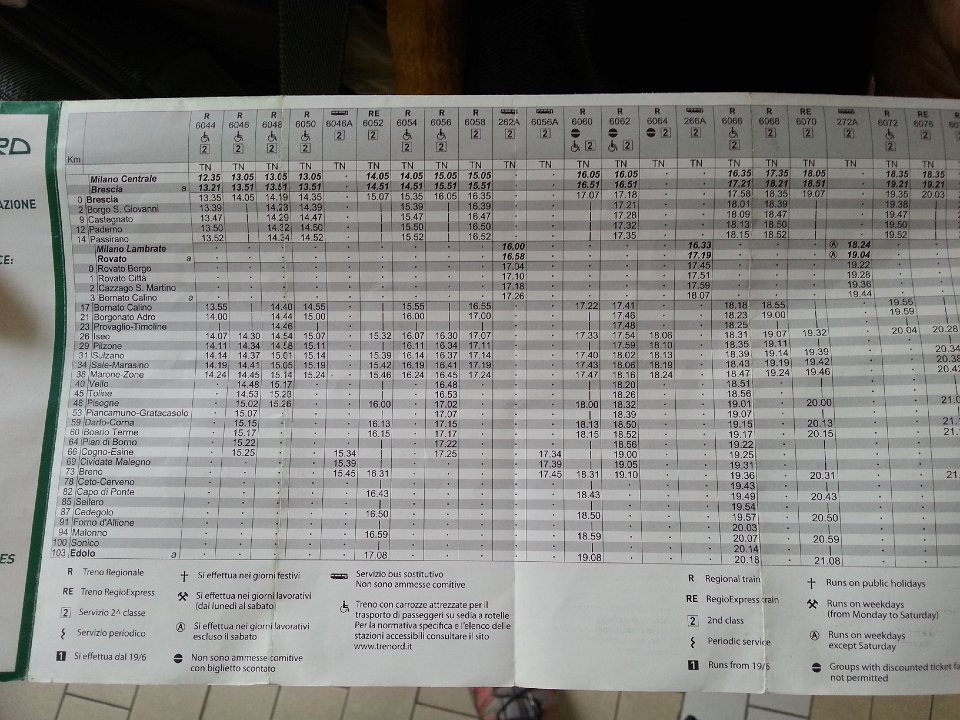 RD
AZIONE
CE:
ES
R R R R RE R R R R R R R R RE R RE R
6044 6046 6048 6050 6046A 6052 6054 6056 6058 262A 6056A 6060 6062 6064 266A 6066 6068 6070 272A 6072 6076
2 2 2 2 2 2 2 2 2 2 2 2 2 2 2 2 2 2 2 2
Km TN TN TN TN TN TN TN TN TN TN TN TN TN TN TN TN TN TN
Milano Centrale 12.35 13.05 13.05 13.05 · 14.05 14.05 15.05 15.05 · · 16.05 16.05 · · 16.35 17.35 18.05 · 18.35 18.35
Brescia a 13.21 13.51 13.51 13.51 · 14.51 14.51 15.51 15.51 · · 16.51 16.51 · · 17.21 18.21 18.51 · 19.21 19.21
0 Brescia 13.35 14.05 14.19 14.35 · 15.07 15.35 16.05 16.35 · · 17.07 17.18 · · 17.58 18.35 19.07 · 19.35 20.03
2 Borgo S. Giovanni 13.39 | 14.23 14.39 · | 15.39 | 16.39 · · | 17.21 · · 18.01 18.39 | · 19.38
9 Castegnato 13.47 | 14.29 14.47 · | 15.47 | 16.47 · · | 17.28 · · 18.09 18.47 | · 19.47
12 Paderno 13.50 | 14.32 14.50 · | 15.50 | 16.50 · · | 17.32 · · 18.13 18.50 | · 19.50
14 Passirano 13.52 | 14.34 14.52 · | 15.52 | 16.52 · · | 17.35 · · 18.15 18.52 | · 19.52
Milano Lambrate 16.00 16.33 A 18.24
Rovato a 16.58 17.19 A 19.04
0 Rovato Borgo 17.04 17.45 19.22
1 Rovato Città 17.10 17.51 19.28
2 Cazzago S. Martino 17.18 17.59 19.36
3 Bornato Calino a 17.26 18.07 19.44
17 Bornato Calino 13.55 | 14.40 14.55 · | 15.55 | 16.55 · · 17.22 17.41 · · 18.18 18.55 | · 19.55
21 Borgonato Adro 14.00 | 14.44 15.00 · | 16.00 | 17.00 · · | 17.46 · · 18.23 19.00 | · 19.59
23 Provaglio-Timoline | | 14.46 | · | | | | · · | 17.48 · · 18.25 | | ·
26 Iseo 14.07 14.30 14.54 15.07 · 15.32 16.07 16.30 17.07 · · 17.33 17.54 18.06 · 18.31 19.07 19.32 · 20.04 20.28
29 Pilzone 14.11 14.34 14.58 15.11 · | 16.11 16.34 17.11 · · | 17.59 18.10 · 18.35 19.11 | ·
31 Sulzano 14.14 14.37 15.01 15.14 · 15.39 16.14 16.37 17.14 · · 17.40 18.02 18.13 · 18.39 19.14 19.39 · · 20.34
34 Sale-Marasino 14.19 14.41 15.05 15.19 · 15.42 16.19 16.41 17.19 · · 17.43 18.06 18.19 · 18.43 19.19 19.42 · · 20.38
38 Marone-Zone 14.24 14.45 15.14 15.24 · 15.46 16.24 16.45 17.24 · · 17.47 18.16 18.24 · 18.47 19.24 19.46 · · 20.42
40 Vello · 14.48 15.17 · · | · 16.48 · · · | 18.20 · · 18.51 · |
45 Toline · 14.53 15.23 · · | · 16.53 · · · | 18.26 · · 18.56 · |
48 Pisogne · 15.02 15.26 · · 16.00 · 17.02 · · · 18.00 18.32 · · 19.01 · 20.00
53 Piancamuno-Gratacasolo · 15.07 · · · | · 17.07 · · · | 18.39 · · 19.07 · |
59 Darfo-Corna · 15.15 · · · 16.13 · 17.15 · · · 18.13 18.50 · · 19.15 · 20.13
60 Boario Terme · 15.17 · · · 16.15 · 17.17 · · · 18.15 18.52 · · 19.17 · 20.15
64 Pian di Borno · 15.22 · · · | · 17.22 · · · | 18.56 · · 19.22 · |
66 Cogno-Esine · 15.25 · · 15.34 | · 17.25 · · 17.34 | 19.00 · · 19.25 · |
69 Cividate Malegno · · · · 15.39 | · · · · 17.39 | 19.05 · · 19.31 · |
73 Breno · · · · 15.45 16.31 · · · · 17.45 18.31 19.10 · · 19.36 · 20.31
78 Ceto-Cerveno 19.43
82 Capo di Ponte 16.43 18.43 19.49 20.43
85 Sellero 19.54
87 Cedegolo 16.50 18.50 19.57 20.50
91 Forno d'Allione 20.03
94 Malonno 16.59 18.59 20.07 20.59
100 Sonico 20.14
103 Edolo a 17.08 19.08 20.18 21.08
R Treno Regionale
RE Treno RegioExpress
2 Servizio 2^ classe
Servizio periodico
1 Si effettua dal 19/6
Si effettua nei giorni festivi
Si effettua nei giorni lavorativi
(dai lunedì al sabato)
A Si effettua nei giorni lavorativi
escluso il sabato
Non sono ammesse comitive
con biglietto scontato
Servizio bus sostitutivo
Non sono ammesse comitive
Treno con carrozze attrezzate per il
trasporto di passeggeri su sedia a rotelle
Per la normativa specifica e l'elenco delle
stazioni accessibili consultare il sito
www.trenord.it
R Regional train
RE RegioExpress train
2 2nd class
Periodic service
1 Runs from 19/6
Runs on public holidays
Runs on weekdays
(from Monday to Saturday)
A Runs on weekdays
except Saturday
Groups with discounted ticket
not permitted